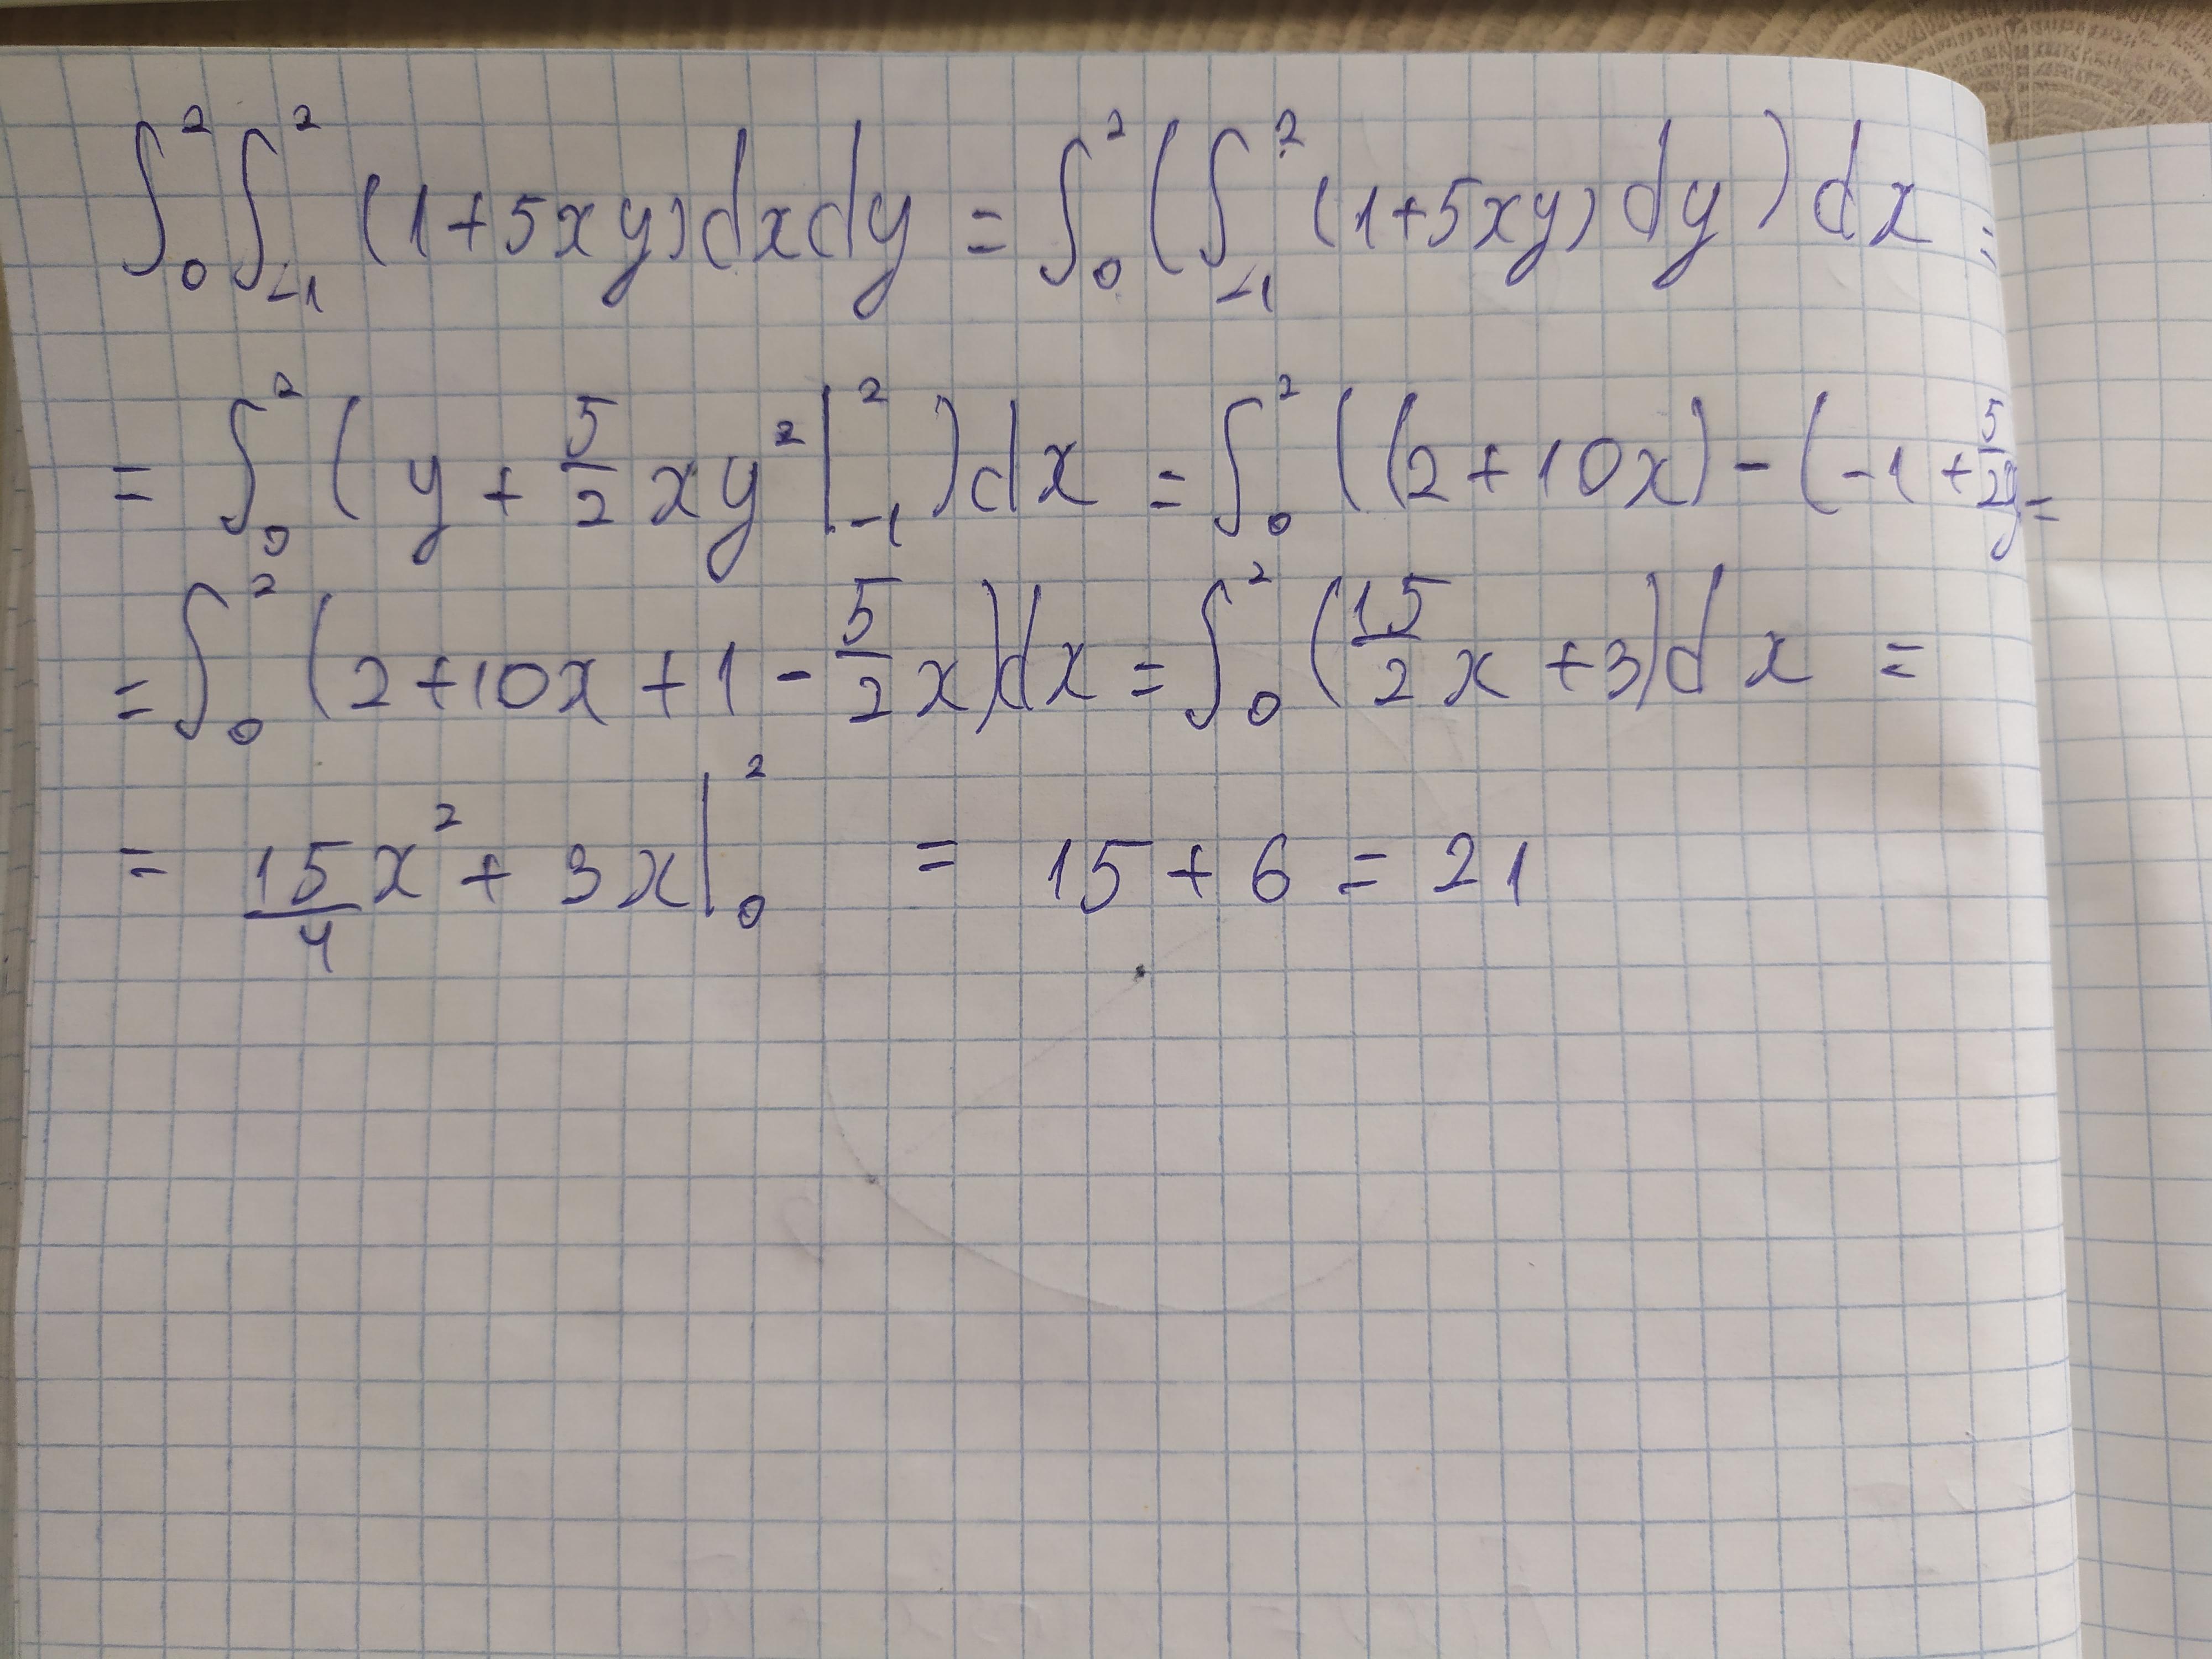 ∫₀² ∫₋₁² (1+5xy)dxdy = ∫₀² (∫₋₁² (1+5xy)dy)dx =
= ∫₀² (y + 5/2 xy² |₋₁²)dx = ∫₀² ((2+10x) - (-1 + 5/2 =
= ∫₀² (2+10x+1 - 5/2 x)dx = ∫₀² (15/2 x +3)dx =
= 15/4 x² + 3x |₀² = 15 + 6 = 21